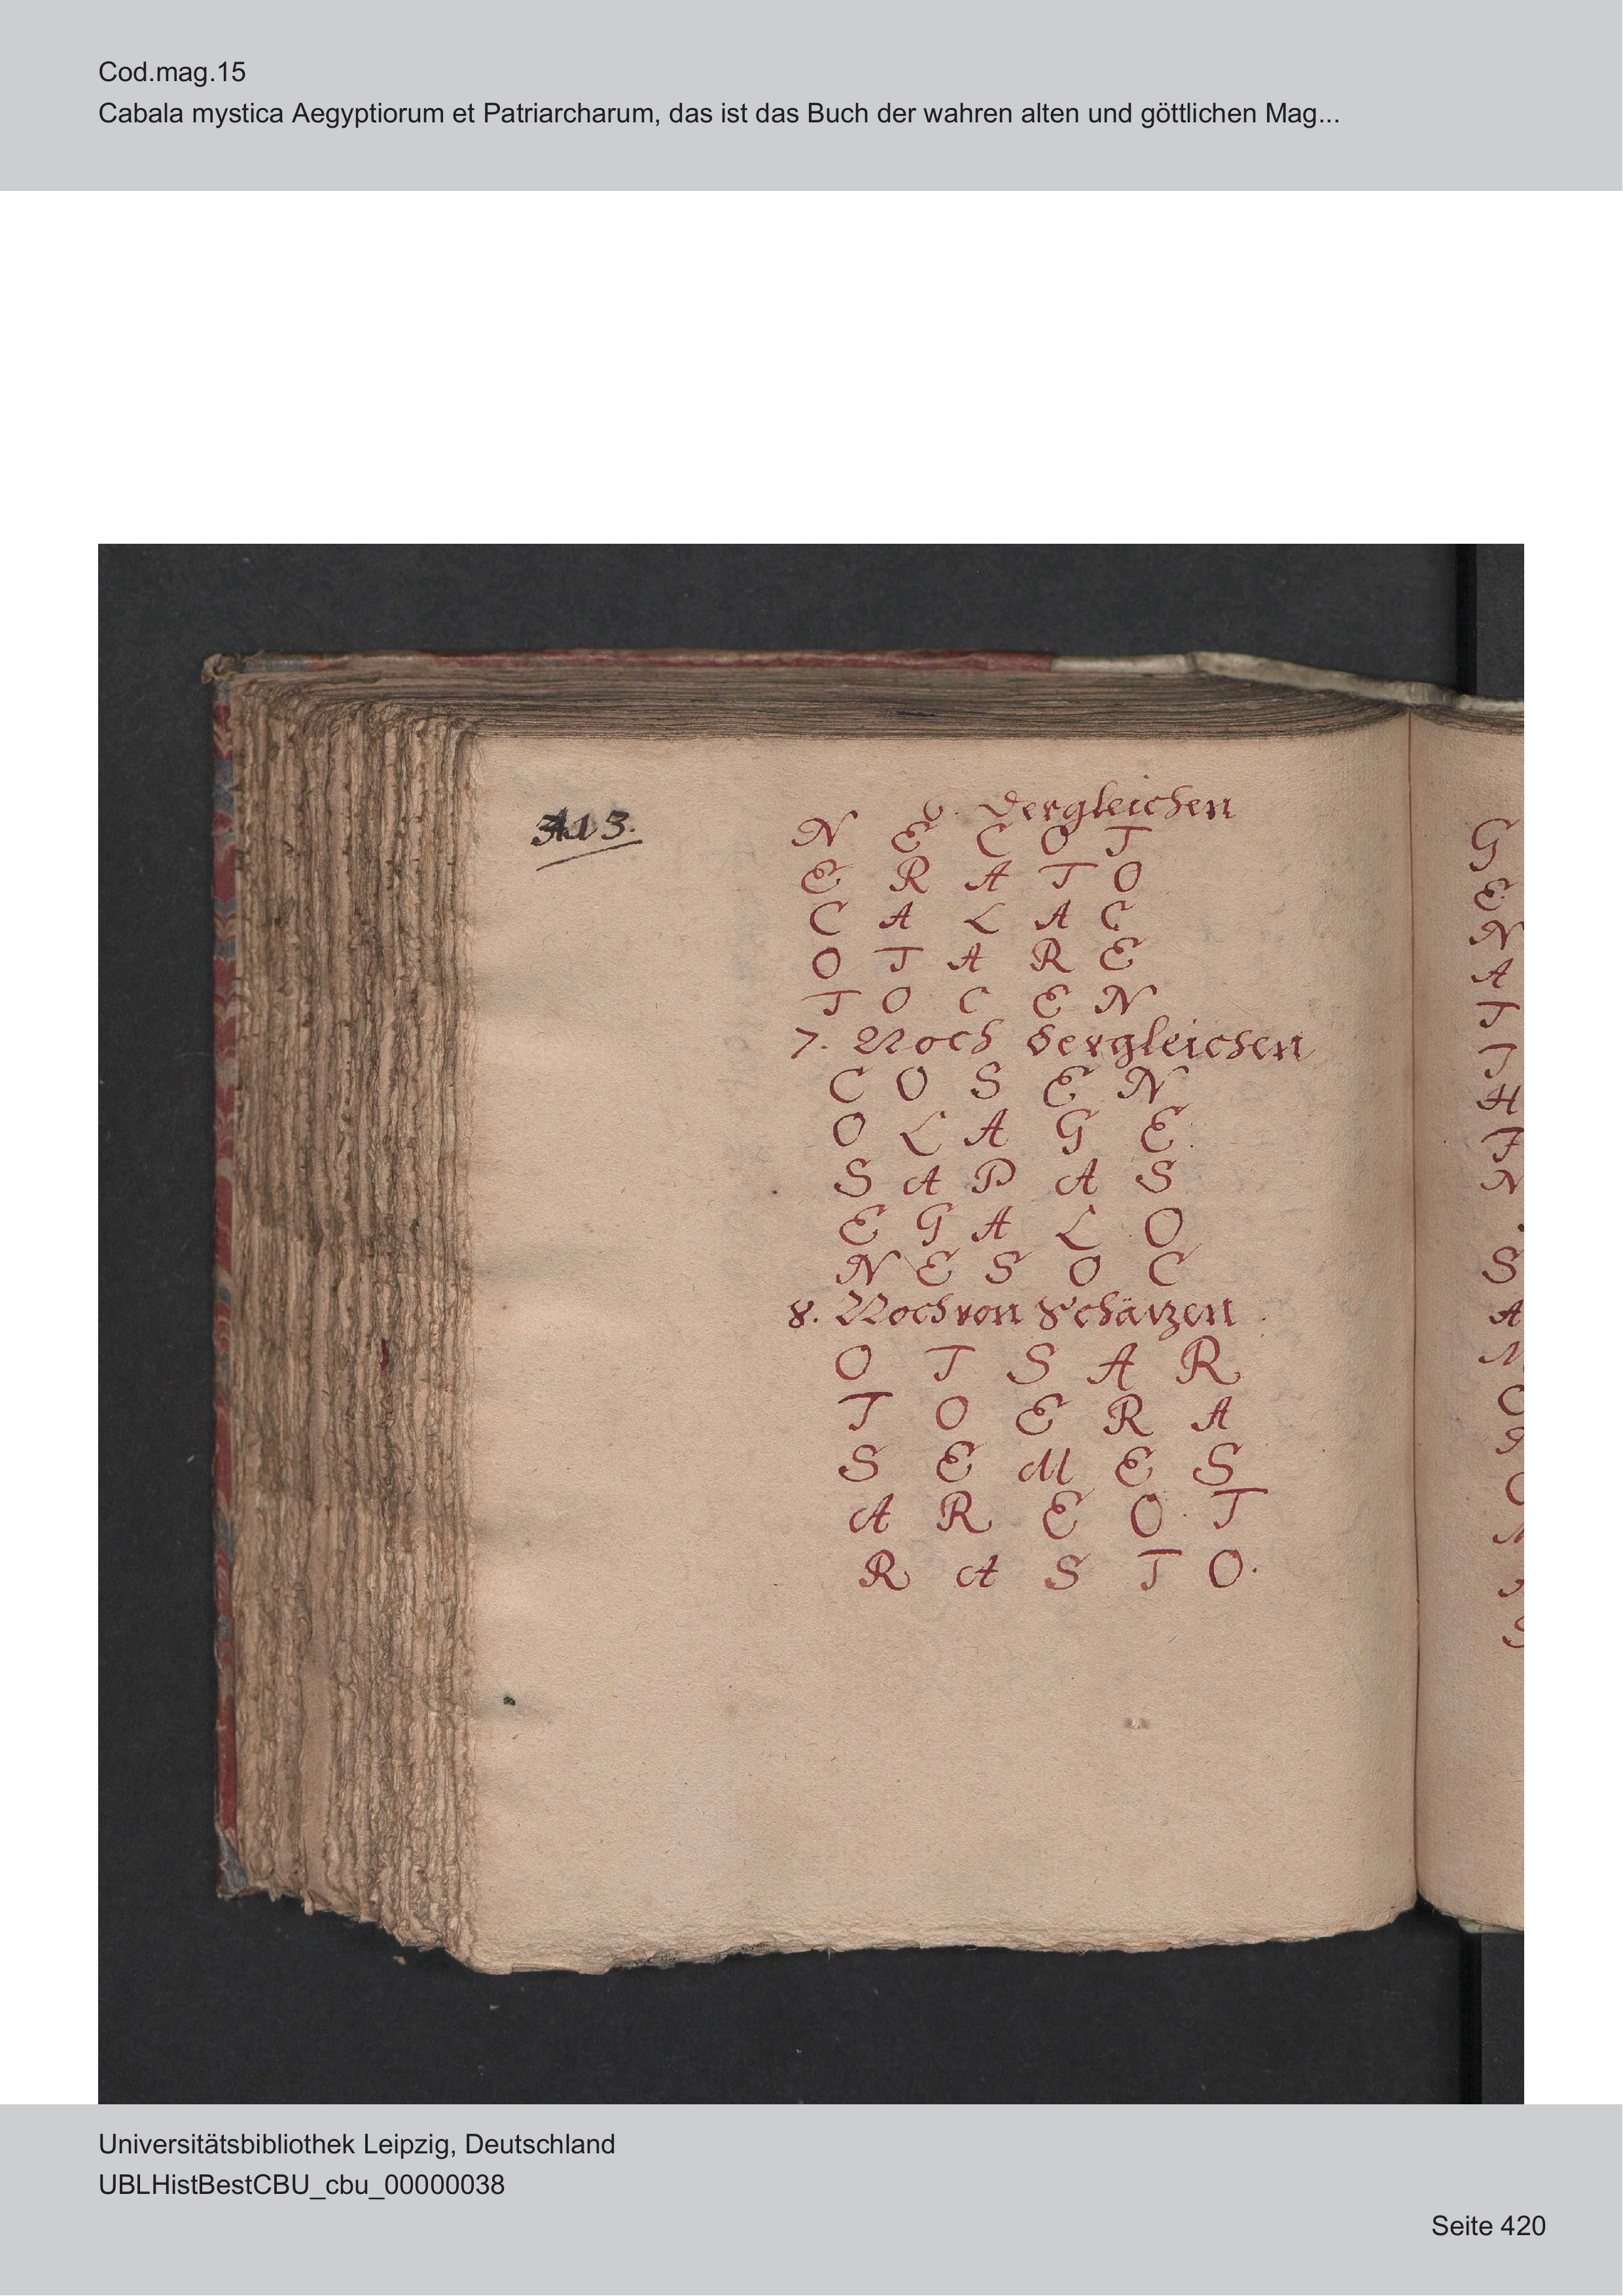 Cod.mag.15
Cabala mystica Aegyptiorum et Patriarcharum, das ist das Buch der wahren alten und göttlichen Mag...
6. Dergleichen
N E C O T
E R A T O
C A L A C
O T A R E
T O C E N
7. Noch dergleichen
C O S E N
O L A G E
S A P A S
E G A L O
N E S O C
8. Noch von Schäzen
O T S A R
T O E R A
S E M E S
A R E O T
R A S T O.
G
E
N
A
T
I
H
N
S
A
M
Universitätsbibliothek Leipzig, Deutschland
UBLHistBestCBU_cbu_00000038
Seite 420